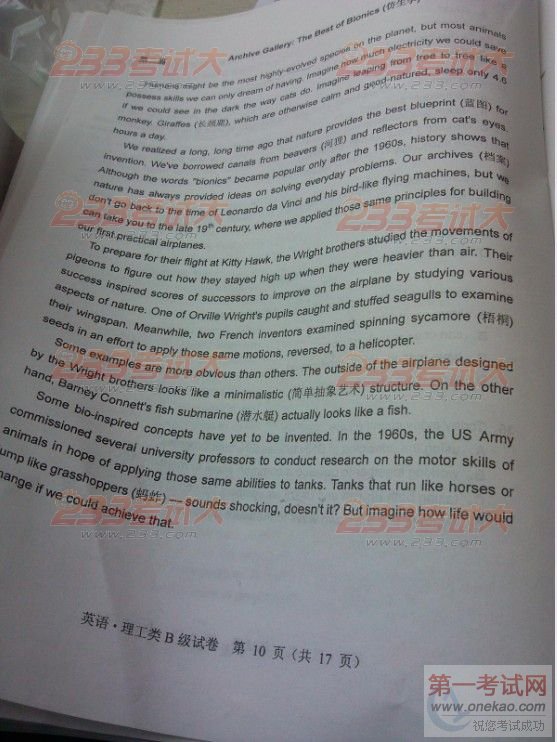 第二篇 Archive Gallery: The Best of Bionics (仿生学)
Humans might be the most highly-evolved species on the planet, but most animals
possess skills we can only dream of having. Imagine how much electricity we could save
if we could see in the dark the way cats do. Imagine leaping from tree to tree like a
monkey. Giraffes (长颈鹿), which are otherwise calm and good-natured, sleep only 4.6
hours a day.
We realized a long, long time ago that nature provides the best blueprint (蓝图) for
invention. We've borrowed canals from beavers (河狸) and reflectors from cat's eyes.
Although the words "bionics" became popular only after the 1960s, history shows that
nature has always provided ideas on solving everyday problems. Our archives (档案)
don't go back to the time of Leonardo da Vinci and his bird-like flying machines, but we
can take you to the late 19th century, where we applied those same principles for building
our first practical airplanes.
To prepare for their flight at Kitty Hawk, the Wright brothers studied the movements of
pigeons to figure out how they stayed high up when they were heavier than air. Their
success inspired scores of successors to improve on the airplane by studying various
aspects of nature. One of Orville Wright's pupils caught and stuffed seagulls to examine
their wingspan. Meanwhile, two French inventors examined spinning sycamore (梧桐)
seeds in an effort to apply those same motions, reversed, to a helicopter.
Some examples are more obvious than others. The outside of the airplane designed
by the Wright brothers looks like a minimalistic (简单抽象艺术) structure. On the other
hand, Barney Connett's fish submarine (潜水艇) actually looks like a fish.
Some bio-inspired concepts have yet to be invented. In the 1960s, the US Army
commissioned several university professors to conduct research on the motor skills of
animals in hope of applying those same abilities to tanks. Tanks that run like horses or
ump like grasshoppers (蚂蚱) — sounds shocking, doesn't it? But imagine how life would
hange if we could achieve that.
英语·理工类B级试卷 第 10 页 (共 17 页)
233考试大
www.233.com
233考试大
www.233.com
233考试大
www.233.com
233考试大
www.233.com
233考试大
www.233.com
233考试大
www.233.com
233考试大
www.233.com
233考试大
www.233.com
第一考试网
www.onekao.com
祝您考试成功